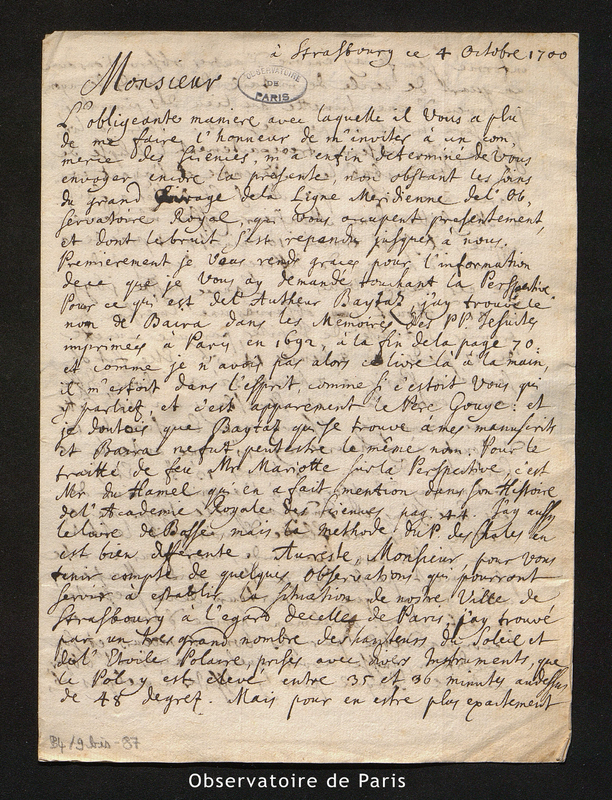 à Strasbourg ce 4 Octobre 1700
Monsieur
OBSERVATOIRE
DE
PARIS
L'obligeante maniere avec laquelle il Vous a plu
de me faire l'honneur de m'inviter à un com,
merce des sciences, m'a enfin determiné de Vous
envoyer encore la presente, non obstant les soins
du grand ouvrage de la Ligne Meridienne de l'Ob,
servatoire Royal, qui Vous occupent presentement,
et dont le bruit s'est repandu jusques à nous.
Premierement je Vous rends graces pour l'information
de ce que je Vous ay demandé touchant la Perspective.
Pour ce qui est de l'Autheur Baytaz, j'ay trouvé le
nom de Baira dans les Memoires des PP. Jesuites
imprimées à Paris en 1692, à la fin de la page 70.
et comme je n'avois pas alors ce livre là à la main,
il m'estoit dans l'esprit, comme si c'estoit Vous qui
y parliez, et c'est apparement le Pere Gouye: et
je doutois que Baytaz qui se trouve à mes manuscrits
et Baira ne fut peut estre le même nom. Pour le
traitté de feu Mr. Mariotte sur la Perspective, c'est
Mr. du Hamel qui en a fait mention dans son Histoire
de l'Academie Royale des sciences pag. 44. J'ay aussy
le livre de Bosse, mais la methode du P. des Chales en
est bien differente. Au reste, Monsieur, pour Vous
tenir compte de quelques Observations qui pourront
servir à establir la situation de nostre Ville de
Strasbourg à l'egard de celle de Paris, j'ay trouvé
par un tres grand nombre des hauteurs du Soleil et
de l'Etoile Polaire, prises avec divers Instruments, que
le Pol y est elevé entre 35 et 36 minutes au dessus
de 48 degrez. Mais pour en estre plus exactement
Observatoire de Paris